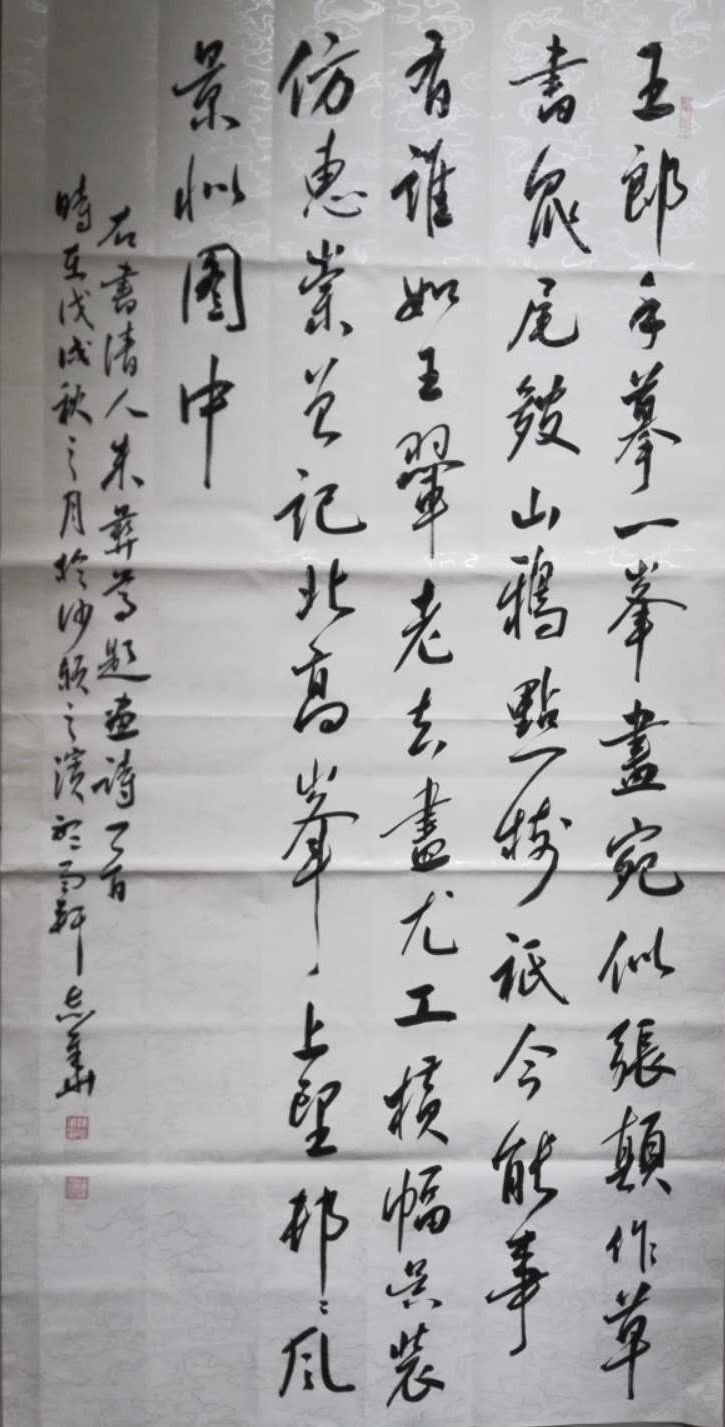 王郎手摹一峯畫宛似張顛作草
書鼠尾皴山鴉點樹祇今能事
有誰如王翬老去畫尤工橫幅吳裝
仿惠崇曾記北高峯上望村村風
景似圖中
右書清人朱彝尊題畫詩二首
時在戊戌秋之月於沙潁之濱